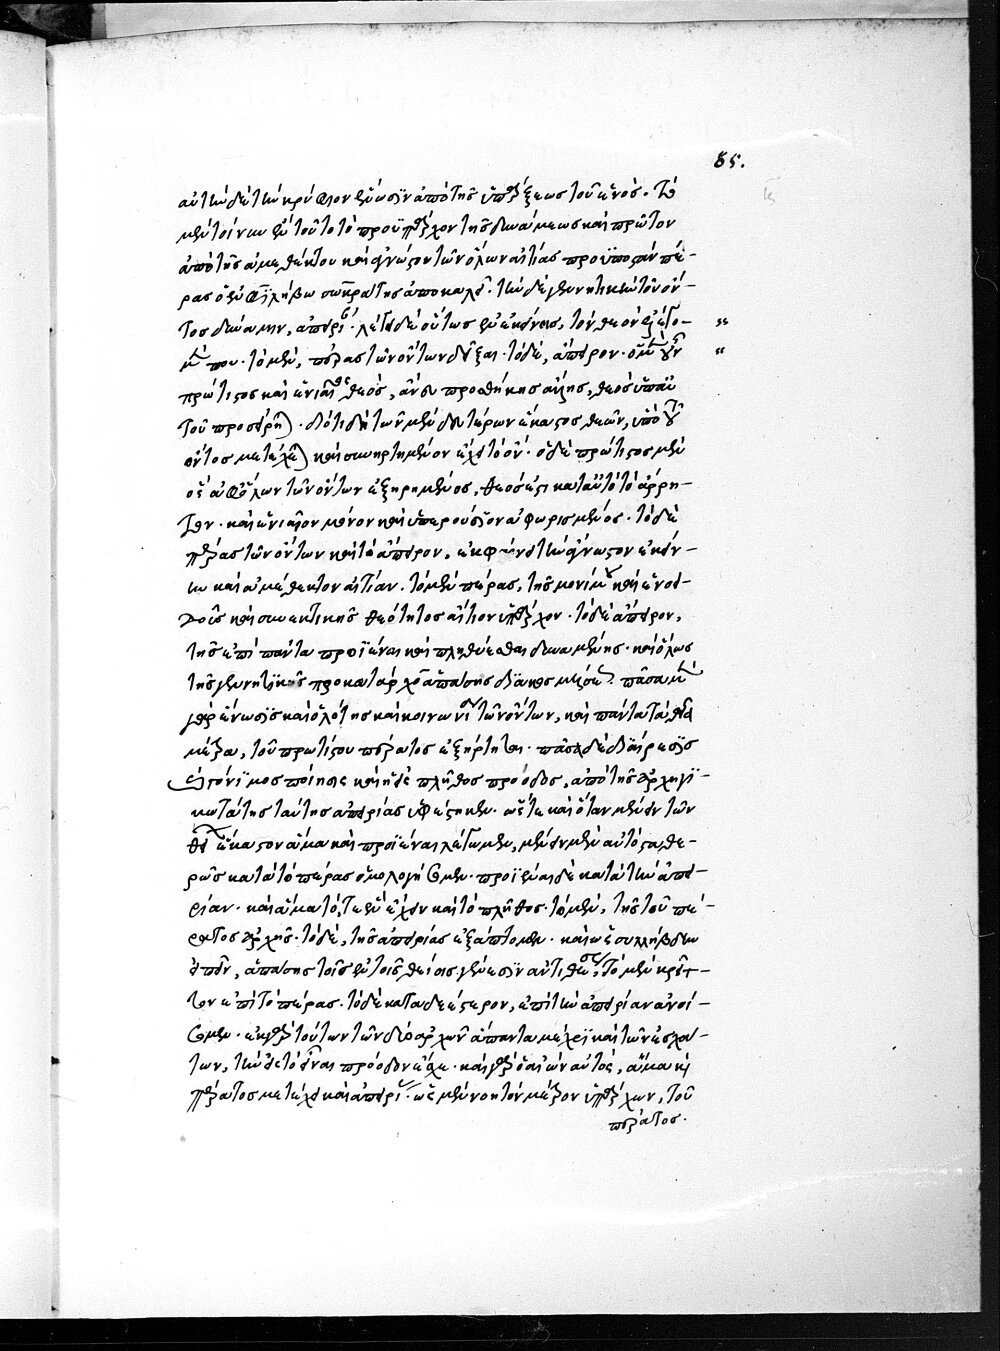 85.
αὐτὴν δὲ τὴν κρύφιον ἕνωσιν ἀπὸ τῆς ὑπάρξεως τοῦ ἑνός. Τὸ
μὲν τοίνυν ἓν τοῦτο τὸ προϋπάρχον τῆς δυνάμεως καὶ πρῶτον
ἀπὸ τῆς ἀμεθέκτου καὶ ἀγνώστου τῶν ὅλων αἰτίας προϋποστὰν πέ-
ρας ὁ ἐν Φιλήβῳ σωκράτης ἀποκαλεῖ. τὴν δὲ γεννητικὴν τῶν ὄν-
των δύναμιν, ἀπειρίαν. λέγει δὲ οὕτως ἐν ἐκείνοις, τὸν θεὸν ἐλέγο- „
μέν που. τὸ μὲν, πέρας τῶν ὄντων δεῖξαι. τὸ δὲ, ἄπειρον. ὁ μὲν οὖν “
πρώτιστος καὶ ἑνιαῖος θεὸς, ἄνευ προσθήκης
τοῦ διότι δὴ τῶν μὲν δευτέρων ἕκαστος θεῶν, ὑπὸ τοῦ
ὄντος μετέχεται καὶ συνηρτημένον ἔχει τὸ ὄν. ὁ δὲ πρώτιστος μὲν
ὅλων τῶν ὄντων ἐξῃρημένος, θεός ἐστι κατ' αὐτὸ τὸ ἄρρη-
τον. καὶ ἑνιαῖον μόνον καὶ ὑπερούσιον ἀφωρισμένος. τὸ δὲ
πέρας τῶν ὄντων καὶ τὸ ἄπειρον, ἐκφαίνει τὴν ἄγνωστον ἐκείν-
ην καὶ ἀμέθεκτον αἰτίαν. τὸ μὲν πέρας, τῆς μονίμου καὶ ἑνοει-
δοῦς καὶ συνεκτικῆς θεότητος αἴτιον ὑπάρχον. τὸ δὲ ἄπειρον,
τῆς ἐπὶ πάντα προϊέναι καὶ πληθύεσθαι δυναμένης. καὶ ὅλως
τῆς γεννητικῆς προκατάρχον ἁπάσης διακοσμήσεως. πᾶσα μὲν
γὰρ ἕνωσις καὶ ὁλότης καὶ κοινωνία τῶν ὄντων, καὶ πάντα τὰ θεῖα
μέτρα, τοῦ πρωτίστου πέρατος ἐξήρτηται. πᾶσα δὲ διαίρεσις
καὶ γόνιμος ποίησις καὶ ἡ εἰς πλῆθος πρόοδος, ἀπὸ τῆς ἀρχηγι-
κωτάτης ταύτης ἀπειρίας ὑφέστηκεν. ὥστε καὶ ὅταν μένειν τῶν
θείων ἕκαστον ἅμα καὶ προϊέναι λέγωμεν, μένειν μὲν αὐτὸ σταθε-
ρῶς κατὰ τὸ πέρας ὁμολογήσομεν. προϊέναι δὲ κατὰ τὴν ἀπει-
ρίαν. καὶ ἅμα τό, τε ἓν ἔχειν καὶ τὸ πλῆθος. τὸ μὲν, τῆς τοῦ πέ-
ρατος ἀρχῆς. τὸ δὲ, τῆς ἀπειρίας ἐξάπτομεν. καὶ ὡς συλλήβδην
εἰπεῖν, ἁπάσης τῆς ἐν τοῖς θείοις γένεσιν ἀντιθέσεως, τὸ μὲν κρεῖτ-
τον ἐπὶ τὸ πέρας. τὸ δὲ καταδεέστερον, ἐπὶ τὴν ἀπειρίαν ἀνοί-
σομεν. ἐκ γὰρ τούτων τῶν δύο ἀρχῶν ἅπαντα μέχρι καὶ τῶν ἐσχά-
των, τὴν εἰς τὸ εἶναι πρόοδον ἔσχε. καὶ γὰρ ὁ αἰὼν αὐτὸς, ἅμα καὶ
πέρατος μετέχει καὶ ἀπειρίας. ὡς μὲν νοητὸν μέτρον ὑπάρχων, τοῦ
πέρατος.